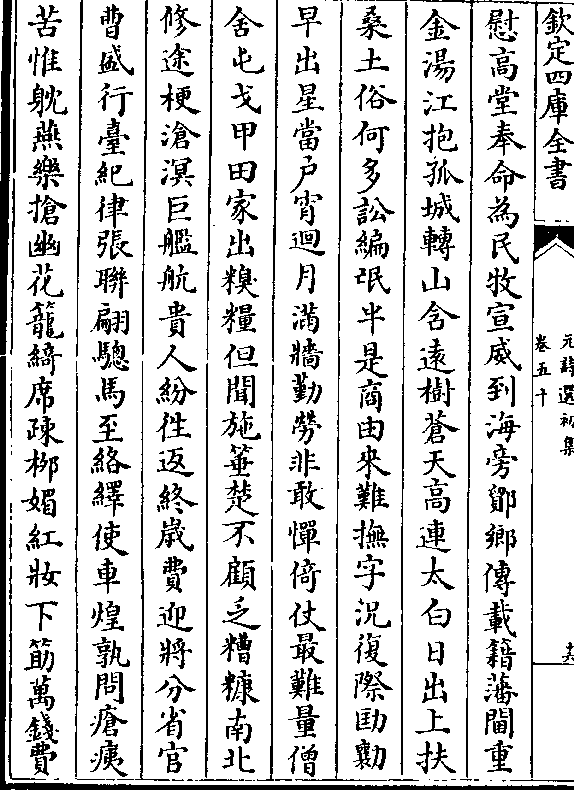 欽定四庫全書
元詩選初集
卷五十
慰高堂奉命為民牧宣威到海旁鄒鄉傳載籍藩閫重
金湯江抱孤城轉山含遠樹蒼天高連太白日出上扶
桑土俗何多訟編氓半是商由來難撫字況復際劻勷
早出星當户宵迴月滿牆勤勞非敢憚倚仗最難量僧
舍屯戈甲田家出糗糧但聞施箠楚不顧乏糟糠南北
修途梗滄溟巨艦航貴人紛徃返終歲費迎將分省官
曹盛行臺紀律張聯翩驄馬至絡繹使車煌孰問瘡痍
苦惟躭燕樂搶幽花籠綺席疎栁媚紅妝下筯萬錢費